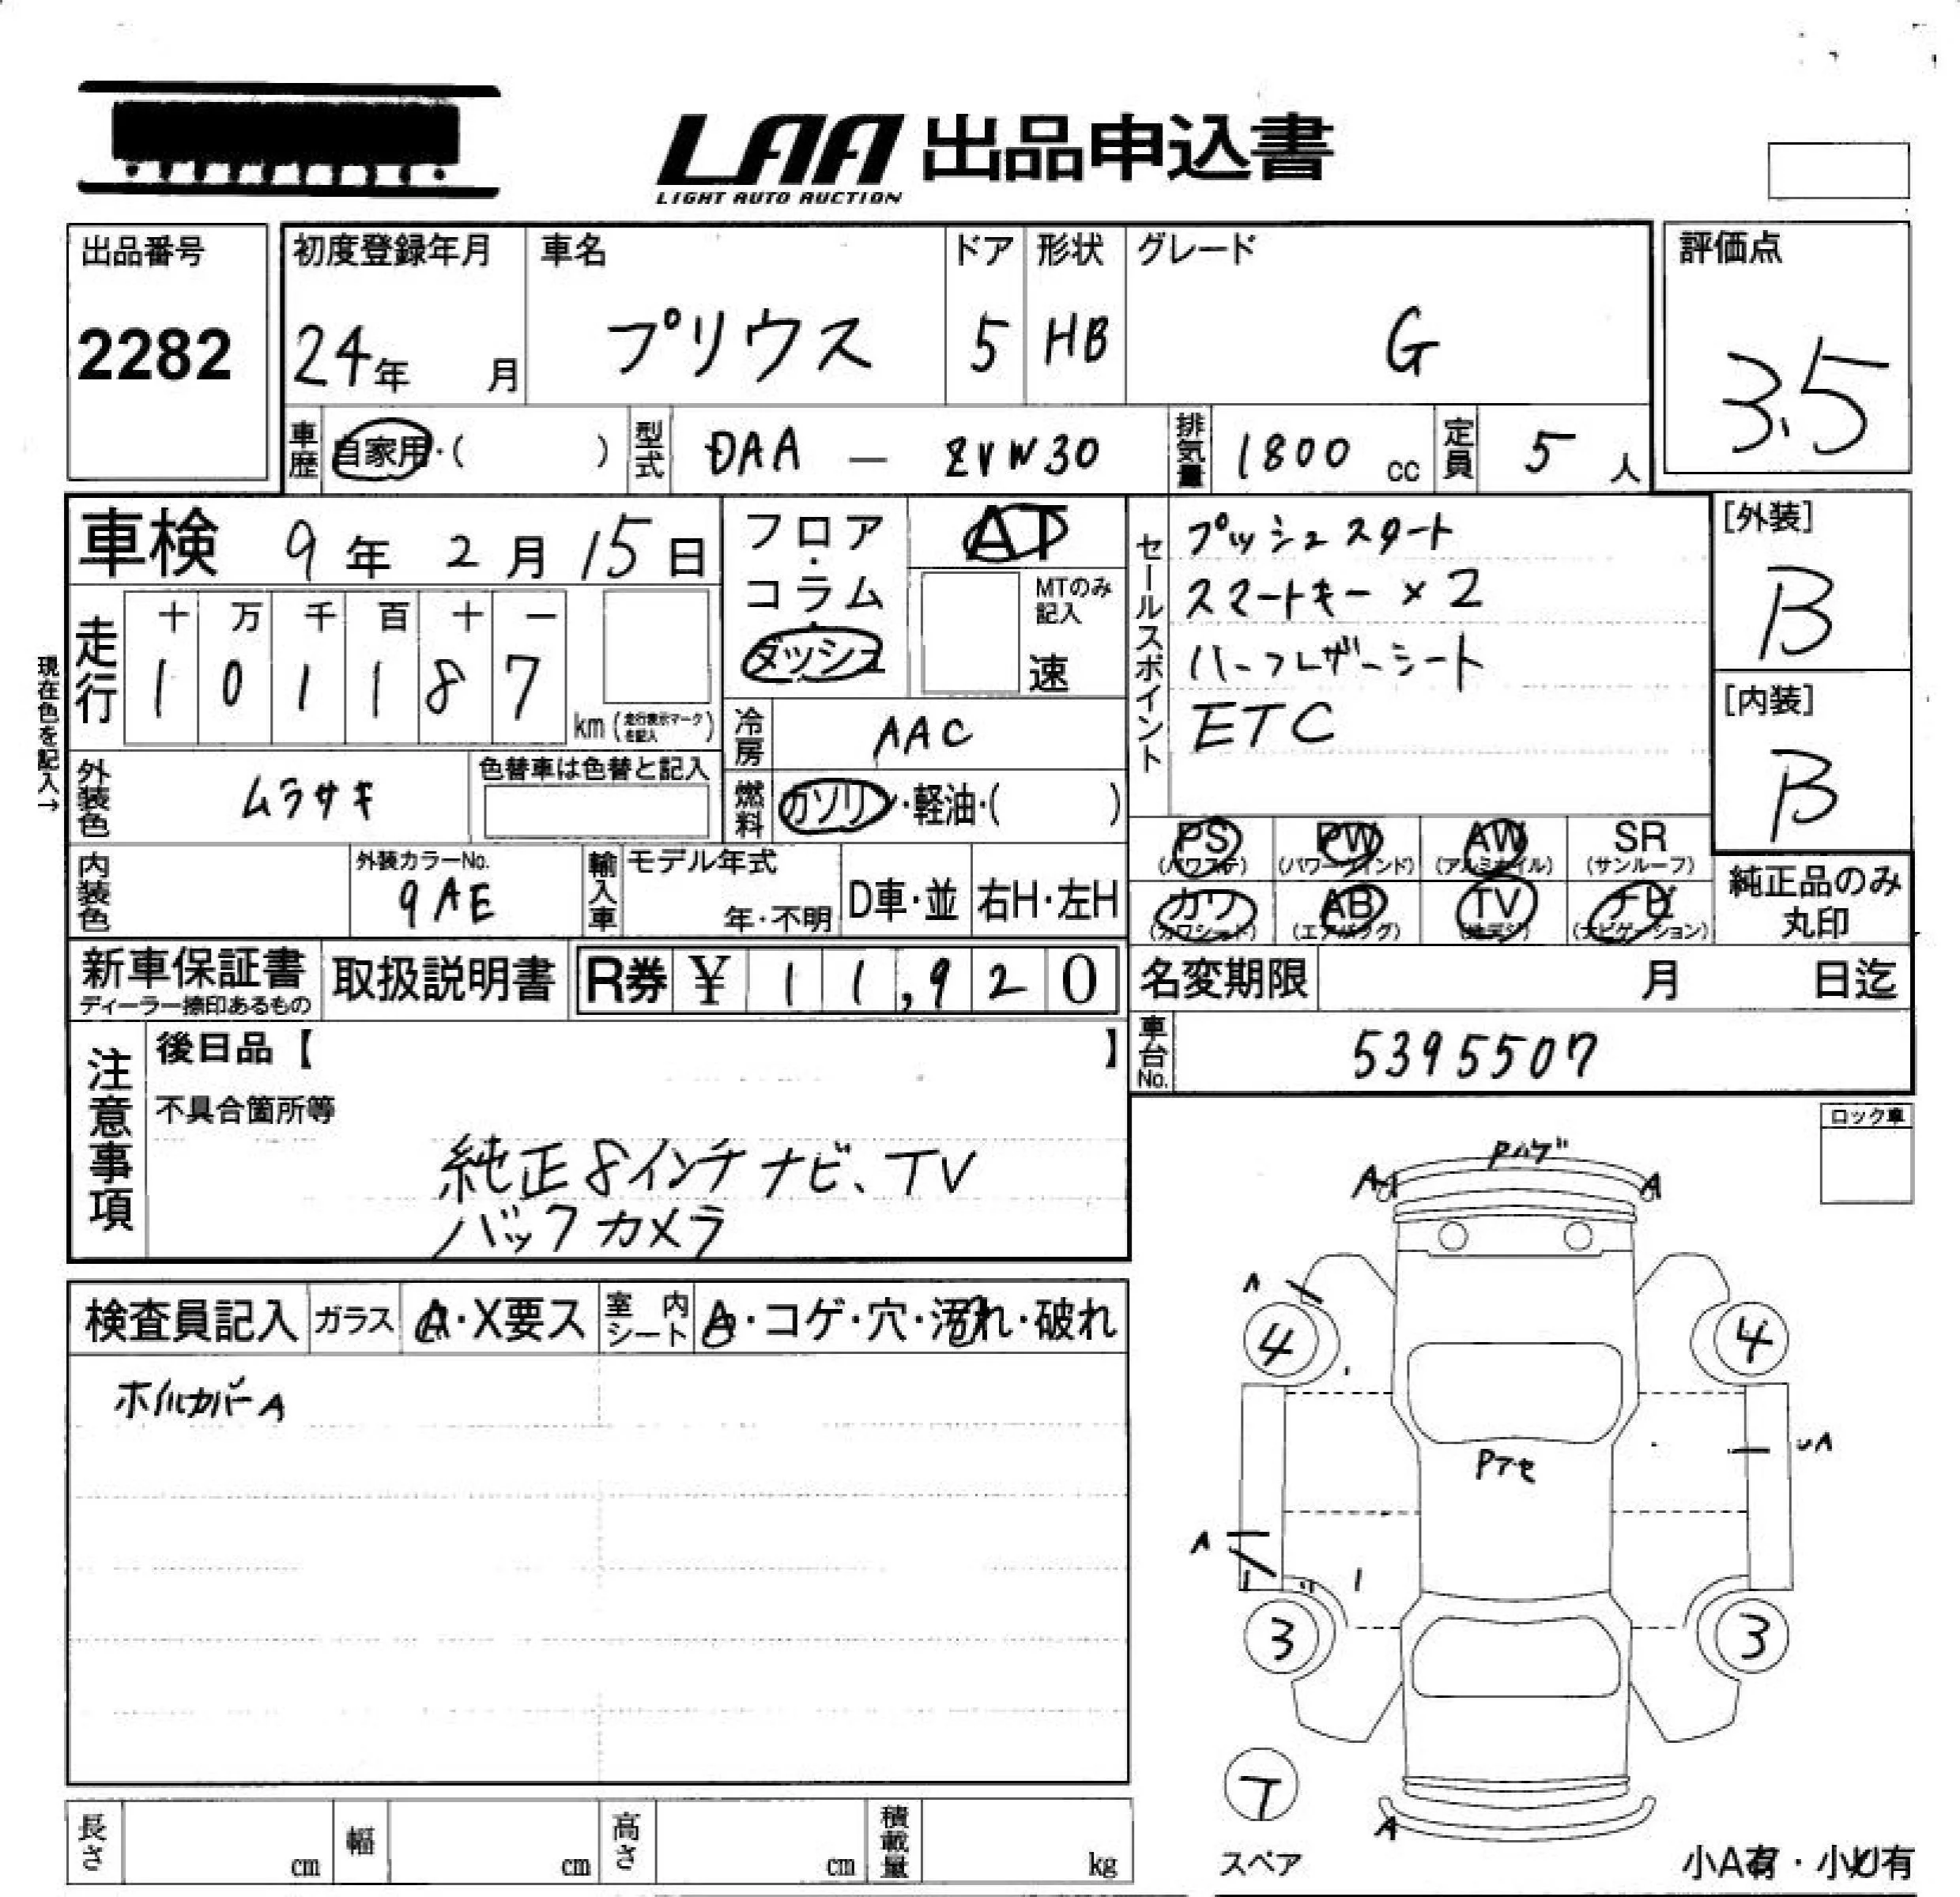 LAA 出品申込書
LIGHT AUTO AUCTION
出品番号
2282
初度登録年月
24年 月
車名
プリウス
ドア
5
形状
HB
グレード
G
評価点
3.5
車歴 自家用・( )
型式 DAA - ZVW30
排気量 1800 cc
定員 5 人
車検 9年 2月 15日
フロア・コラム・ダッシュ
AT
MTのみ記入
速
セールスポイント
プッシュスタート
スマートキー×2
ハーフレザーシート
ETC
[外装]
B
[内装]
B
現在色を記入→
走行
十 万 千 百 十 一
1 0 1 1 8 7
km (走行表示マークを記入)
冷房 AAC
燃料 ガソリン・軽油・( )
外装色 ムラサキ
色替車は色替と記入
内装色
外装カラーNo.
9AE
輸入車
モデル年式
年・不明
D車・並
右H・左H
PS (パワステ)
PW (パワーウインド)
AW (アルミホイル)
SR (サンルーフ)
カワ (カワシート)
AB (エアバッグ)
TV (地デジ)
ナビ (ナビゲーション)
純正品のみ丸印
新車保証書
ディーラー捺印あるもの
取扱説明書
R券 ¥ 11,920
名変期限 月 日迄
車台No. 5395507
注意事項
後日品【 】
不具合箇所等
純正8インチナビ、TV
バックカメラ
ロック車
検査員記入
ガラス A・X要ス
室内シート A・コゲ・穴・汚れ・破れ
ホイルカバーA
Pハゲ
A
A
A
4
4
Pアセ
UA
A
3
3
T
スペア
A
小A有・小U有
長さ cm
幅 cm
高さ cm
積載量 kg